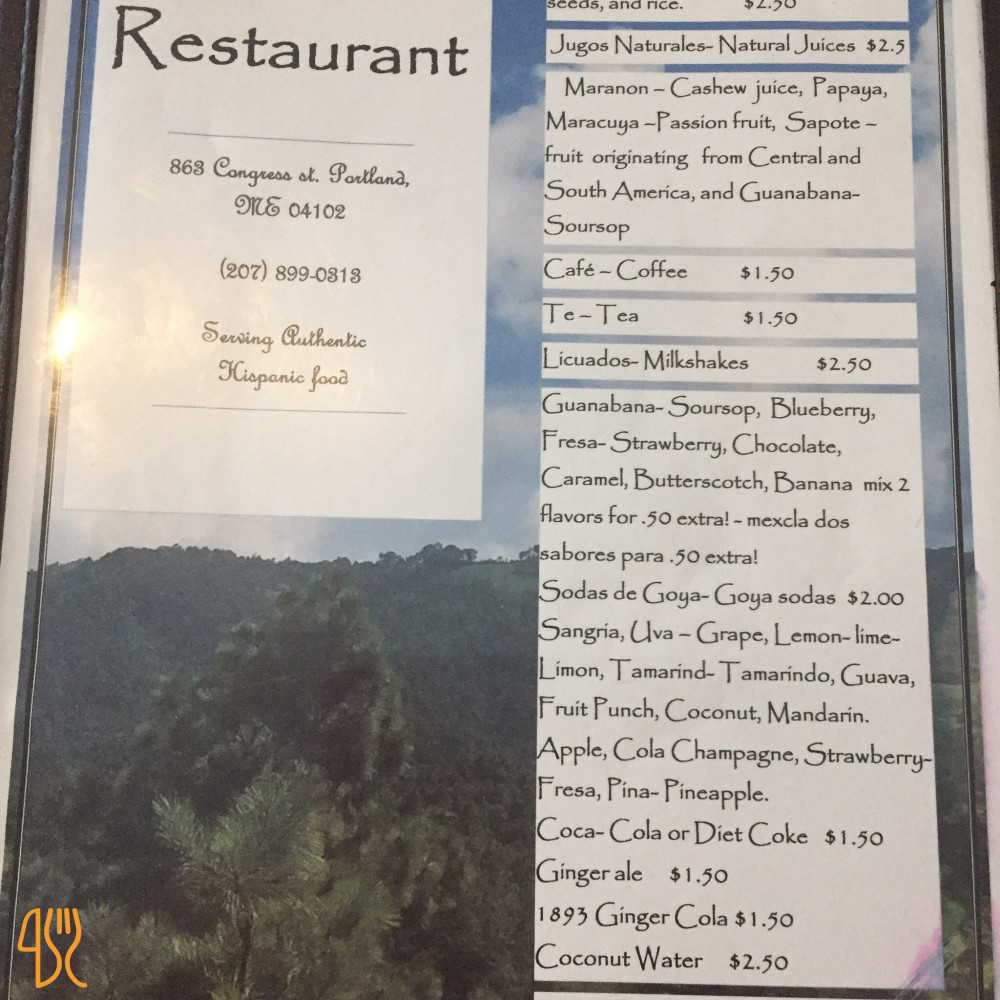 Restaurant
863 Congress st. Portland,
ME 04102
(207) 899-0313
Serving Authentic
Hispanic food
seeds, and rice. $2.50
Jugos Naturales- Natural Juices $2.5
Maranon – Cashew juice, Papaya,
Maracuya –Passion fruit, Sapote –
fruit originating from Central and
South America, and Guanabana-
Soursop
Café – Coffee $1.50
Te – Tea $1.50
Licuados- Milkshakes $2.50
Guanabana- Soursop, Blueberry,
Fresa- Strawberry, Chocolate,
Caramel, Butterscotch, Banana mix 2
flavors for .50 extra! - mexcla dos
sabores para .50 extra!
Sodas de Goya- Goya sodas $2.00
Sangria, Uva – Grape, Lemon- lime-
Limon, Tamarind- Tamarindo, Guava,
Fruit Punch, Coconut, Mandarin.
Apple, Cola Champagne, Strawberry-
Fresa, Pina- Pineapple.
Coca- Cola or Diet Coke $1.50
Ginger ale $1.50
1893 Ginger Cola $1.50
Coconut Water $2.50